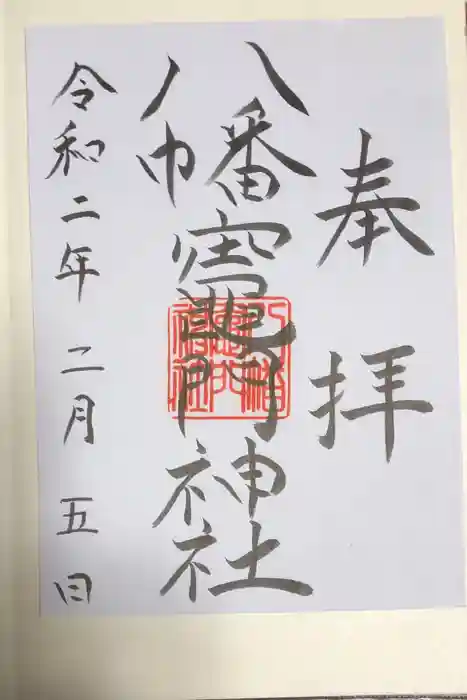 奉拝
八幡竈門神社
令和二年二月五日